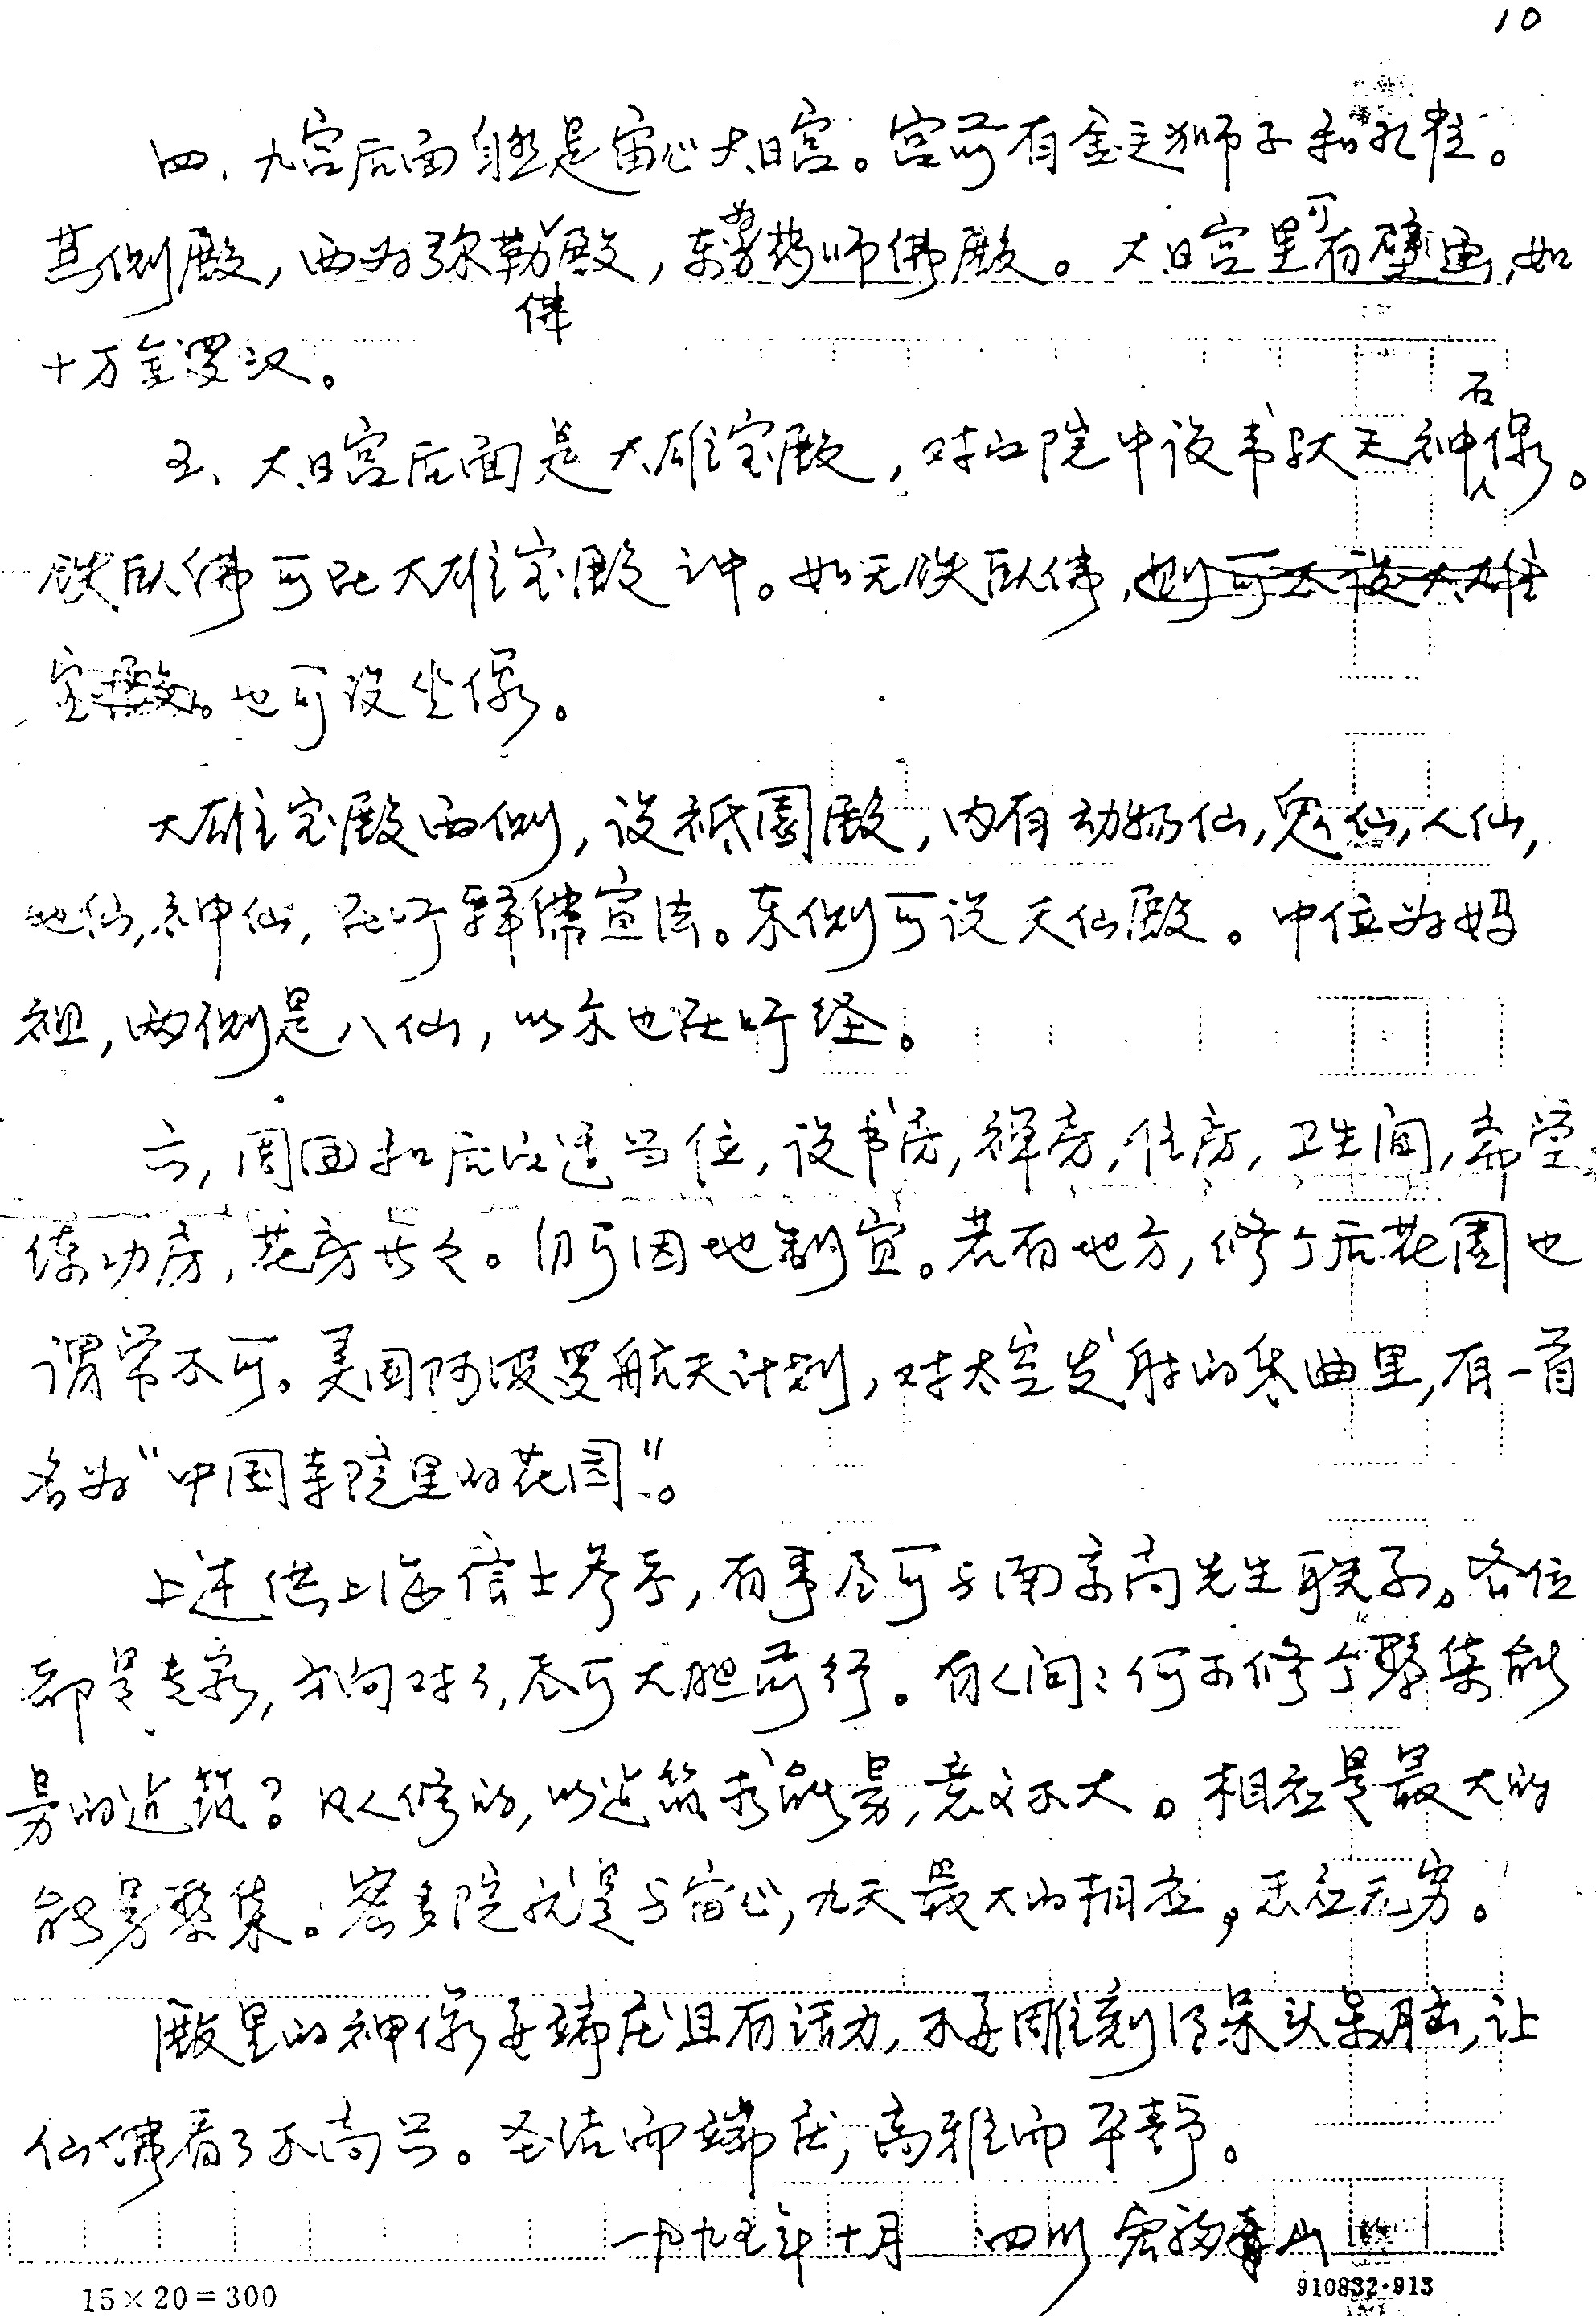 10
四、九宫后面自然是宙心大日宫。宫前有金毛狮子和孔雀。
其侧殿，西为弥勒佛殿，东为药师佛殿。大日宫里可有壁画，如
十万金罗汉。
五、大日宫后面是大雄宝殿，对的院中设韦驮天神石像。
铁卧佛可在大雄宝殿中。如无铁卧佛，则可不设大雄
宝殿。也可设坐像。
大雄宝殿西侧，设祇园殿，内有动物仙，鬼仙，人仙，
地仙，神仙，在听释佛宣法。东侧可设天仙殿。中位为妈
祖，两侧是八仙，以示也在听经。
六，周围和后边适当位，设书房，禅房，住房，卫生间，斋堂，
练功房，花房共之。仍可因地制宜。若有地方，修个后花园也
谓尝不可。美国阿波罗航天计划，对太空发射的乐曲里，有一首
名为“中国寺院里的花园”。
上述供上海信士参考，有事尽可与南京尚先生联系。各位
都是专家，方向对了，尽可大胆前行。有人问：何不修个聚集能
量的建筑？凡人修的，以建筑求能量，意义不大。相应是最大的
能量聚集。密多院就是与宙心，九天最大的相应，感应无穷。
殿里的神像要端庄且有活力，不要雕刻得呆头呆脑，让
仙佛看了不高兴。圣洁而端庄，高雅而平静。
一九九五年十月 四川
15×20=300
910832·913